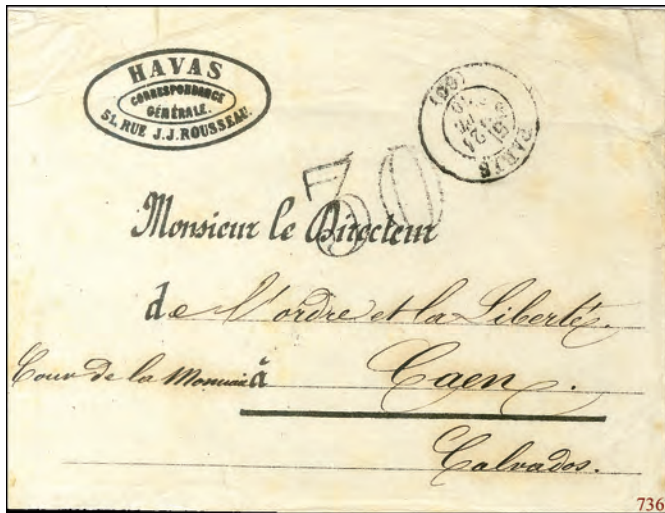 HAVAS
CORRESPONDANCE
GÉNÉRALE.
51, RUE J.J. ROUSSEAU.
PARIS
(60)
30
Monsieur le Directeur
de l'ordre et la Liberté.
Cour de la Monnaie à Caen.
Calvados.
736